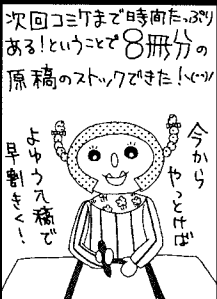 次回コミケまで時間たっぷり
ある!ということで8冊分の
原稿のストックできた!\(^^)/
今から
やっとけば
よゆう入稿で
早割きく!